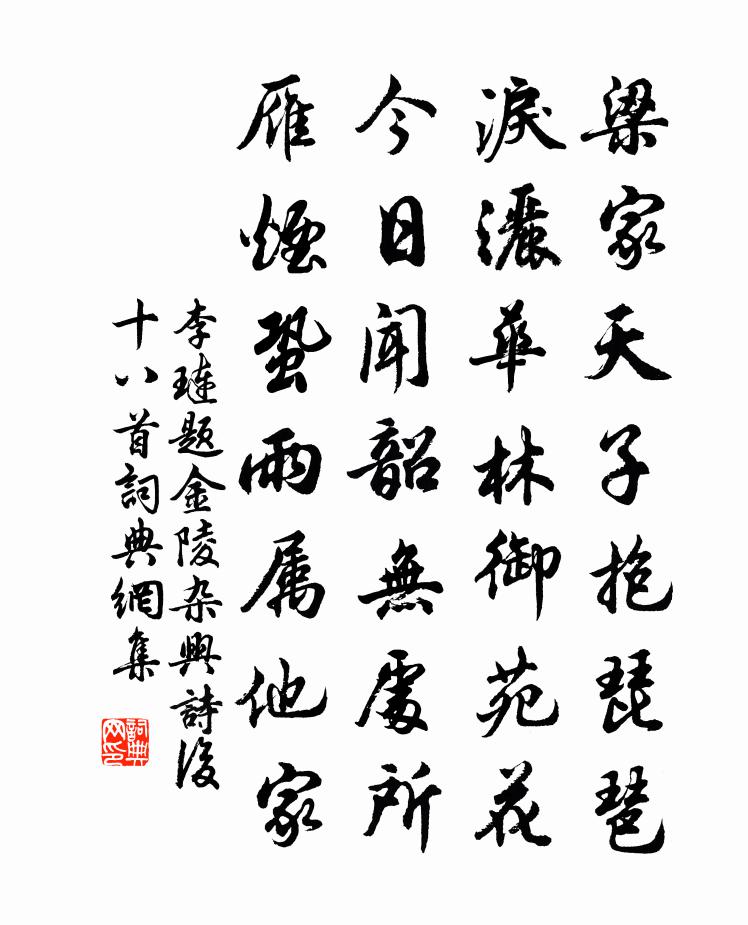 梁家天子抱琵琶
淚灑華林御苑花
今日聞韶無處所
雁煙蛩雨属他家
李璉題金陵杂興詩後
十八首詞典網集
詞典网印